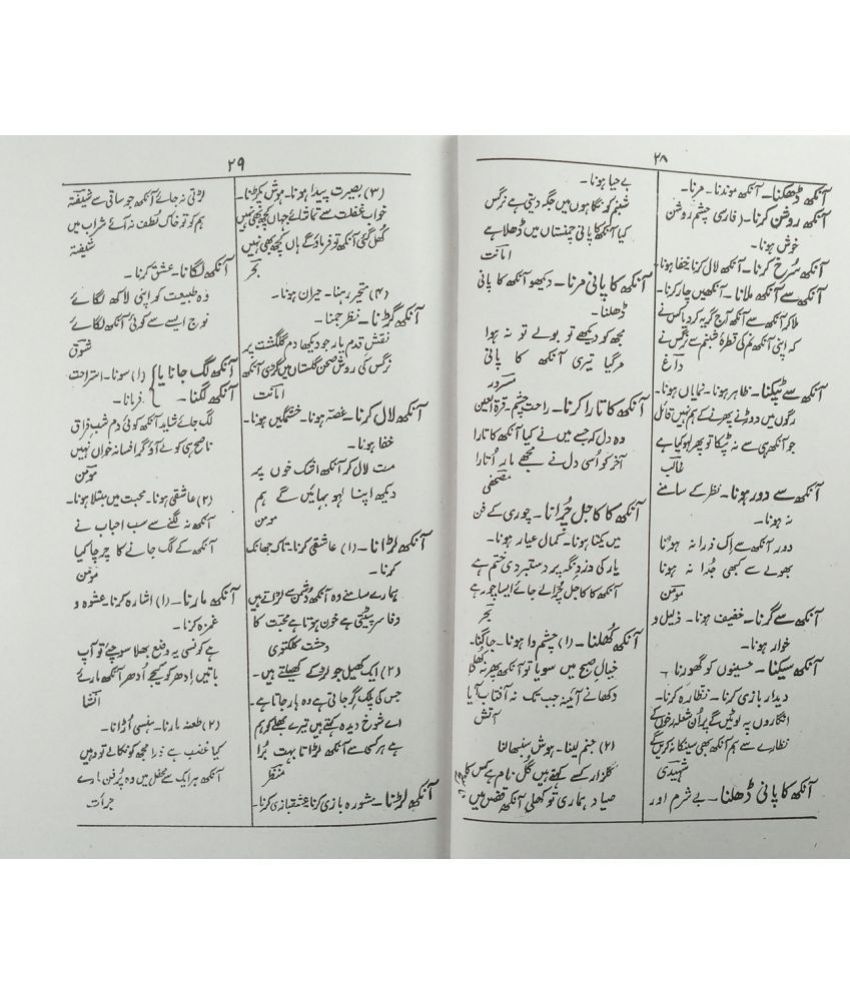 ۲۸
آنکھ ڈھکنا۔ آنکھ موندنا۔ مرنا۔
آنکھ روشن کرنا۔ (فارسی چشم روشن
خوش ہونا۔
آنکھ سُرخ کرنا۔ آنکھ لال کرنا خفا ہونا۔
آنکھ سے آنکھ ملانا۔ آنکھیں چار کرنا۔
ملا کر آنکھ سے آنکھ آج گریہ کر دیا کس نے
کہ اپنی آنکھ نم کی قطرۂ شبنم سے نرگس نے
داغ
آنکھ سے ٹپکنا۔ ظاہر ہونا۔ نمایاں ہونا۔
رگوں میں دوڑنے پھرنے کے ہم نہیں قائل
جو آنکھ ہی سے نہ ٹپکا تو پھر لہو کیا ہے
غالب
آنکھ سے دور ہونا۔ نظر کے سامنے
نہ ہونا۔
دور آنکھ سے اِک ذرا نہ ہونا
بھولے سے کبھی جُدا نہ ہونا
مومن
آنکھ سے گرنا۔ خفیف ہونا۔ ذلیل و
خوار ہونا۔
آنکھ سیکنا۔ حسینوں کو گھورنا۔
دیدار بازی کرنا۔ نظّارہ کرنا۔
انگاروں پہ لوٹیں گے پر اُن شعلہ رخوں کے
نظارے سے ہم آنکھ بھی سینکا نہ کریں گے
شہیدی
آنکھ کا پانی ڈھلنا۔ بے شرم اور
بے حیا ہونا۔
شبنم کو نگاہوں میں جگہ دیتی ہے نرگس
کیا آنکھ کا پانی چمنستاں میں ڈھلا ہے
امانت
آنکھ کا پانی مرنا۔ دیکھو آنکھ کا پانی
ڈھلنا۔
مجھ کو دیکھے تو بولے تو نہ ہوا
مر گیا تیری آنکھ کا پانی
سرور
آنکھ کا تارا کرنا۔ راحت چشم۔ قرۃ العین
وہ دل کہ جسے میں نے کیا آنکھ کا تارا
آخر کو اُسی دل نے مجھے بار اُتارا
مصحفی
آنکھ کا کاجل چُرانا۔ چوری کے فن
میں یکتا ہونا۔ کمال عیار ہونا۔
یار کی دزدِ نگہ پر دستبردی ختم ہے
آنکھ کا کاجل چُرا لے جائے ایسا چور ہے
بحر
آنکھ کُھلنا۔ (۱) چشم وا ہونا۔ جاگنا۔
خیالِ صبح میں سویا تو آنکھ پھر نہ کُھلی
دکھانے آئینہ جب تک نہ آفتاب آیا
آتش
(۲) جنم لینا۔ ہوش سنبھالنا
گلزار کسے کہتے ہیں گُل نام ہے کس کا
صیاد ہماری تو کھلی آنکھ قفس میں
۲۹
(۳) بصیرت پیدا ہونا۔ ہوش پکڑنا۔
خواب غفلت سے تماشائے جہاں کچھ بھی نہیں
کُھل گئی آنکھ تو فرماؤ گے ہاں کچھ بھی نہیں
بحر
(۴) متحیر رہنا۔ حیران ہونا۔
آنکھ گڑنا۔ نظر جمنا۔
نقش قدمِ یار جو دیکھا دمِ گلگشت پر
نرگس کی روش صحن گلستاں میں گڑی آنکھ
امانت
آنکھ لال کرنا۔ غصہ ہونا۔ خشمگیں ہونا۔
خفا ہونا۔
مت لال کر آنکھ اشک خوں پر
دیکھ اپنا لہو بہائیں گے ہم
مومن
آنکھ لڑانا۔ (۱) عاشقی کرنا۔ تاک جھانک
کرنا۔
ہمارے سامنے وہ آنکھ دشمن سے لڑاتے ہیں
وفا سر پیٹتی ہے خون ہوتا ہے محبت کا
وحشت کلکتوی
(۲) ایک کھیل جو لڑکے کھیلتے ہیں۔
جس کی پلک گر جاتی ہے وہ ہار جاتا ہے۔
اے شوخ دیدہ کہتے ہیں تیرے بھلے کو ہم
ہے ہر کسی سے آنکھ لڑانا بہت بُرا
منتظر
آنکھ لڑنا۔ مشورہ بازی کرنا عشقبازی کرنا۔
لڑتی نہ جائے آنکھ جو ساقی سے شیفتہ
ہم کو تو خاک لُطف نہ آئے شراب میں
شیفتہ
آنکھ لگانا۔ عشق کرنا۔
وہ طبیعت کو اپنی لاکھ لگائے
نوج ایسے سے کوئی آنکھ لگائے
شوق
آنکھ لگ جانا یا } (۱) سونا۔ استراحت
آنکھ لگنا۔ } فرمانا۔
لگ جائے شاید آنکھ کوئی دم شبِ فراق
ناصح ہی کو لے آؤ گر افسانہ خواں نہیں
مومن
(۲) عاشقی ہونا۔ محبت میں مبتلا ہونا۔
آنکھ نہ لگنے سے سب احباب نے
آنکھ کے لگ جانے کا چرچا کیا
مومن
آنکھ مارنا۔ (۱) اشارہ کرنا۔ عشوہ و
غمزہ کرنا۔
ہے کونسی یہ وضع بھلا سوچئے تو آپ
باتیں اِدھر کو کیجے اُدھر آنکھ مارئے
انشا
(۲) طعنہ مارنا۔ ہنسی اُڑانا۔
کیا غضب ہے ذرا مجھ کو نکالے تو وہیں
آنکھ ہر ایک سے محفل میں وہ پُر فن مارے
جرات